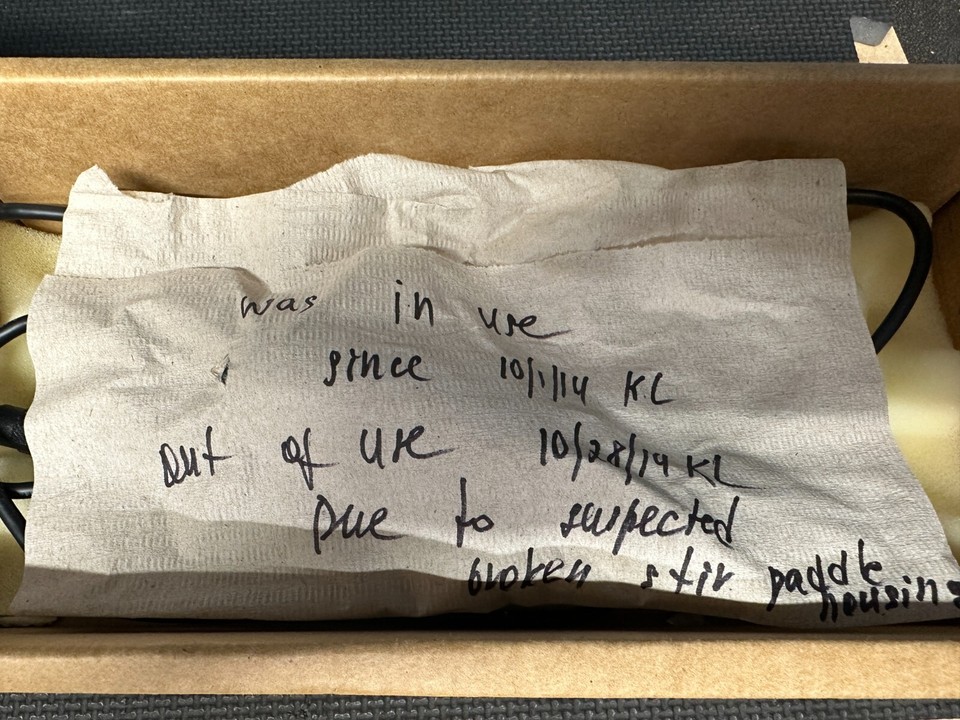 was in use
since 10/1/14 KL
out of use 10/28/14 KL
Due to suspected
broken stir paddle
housing